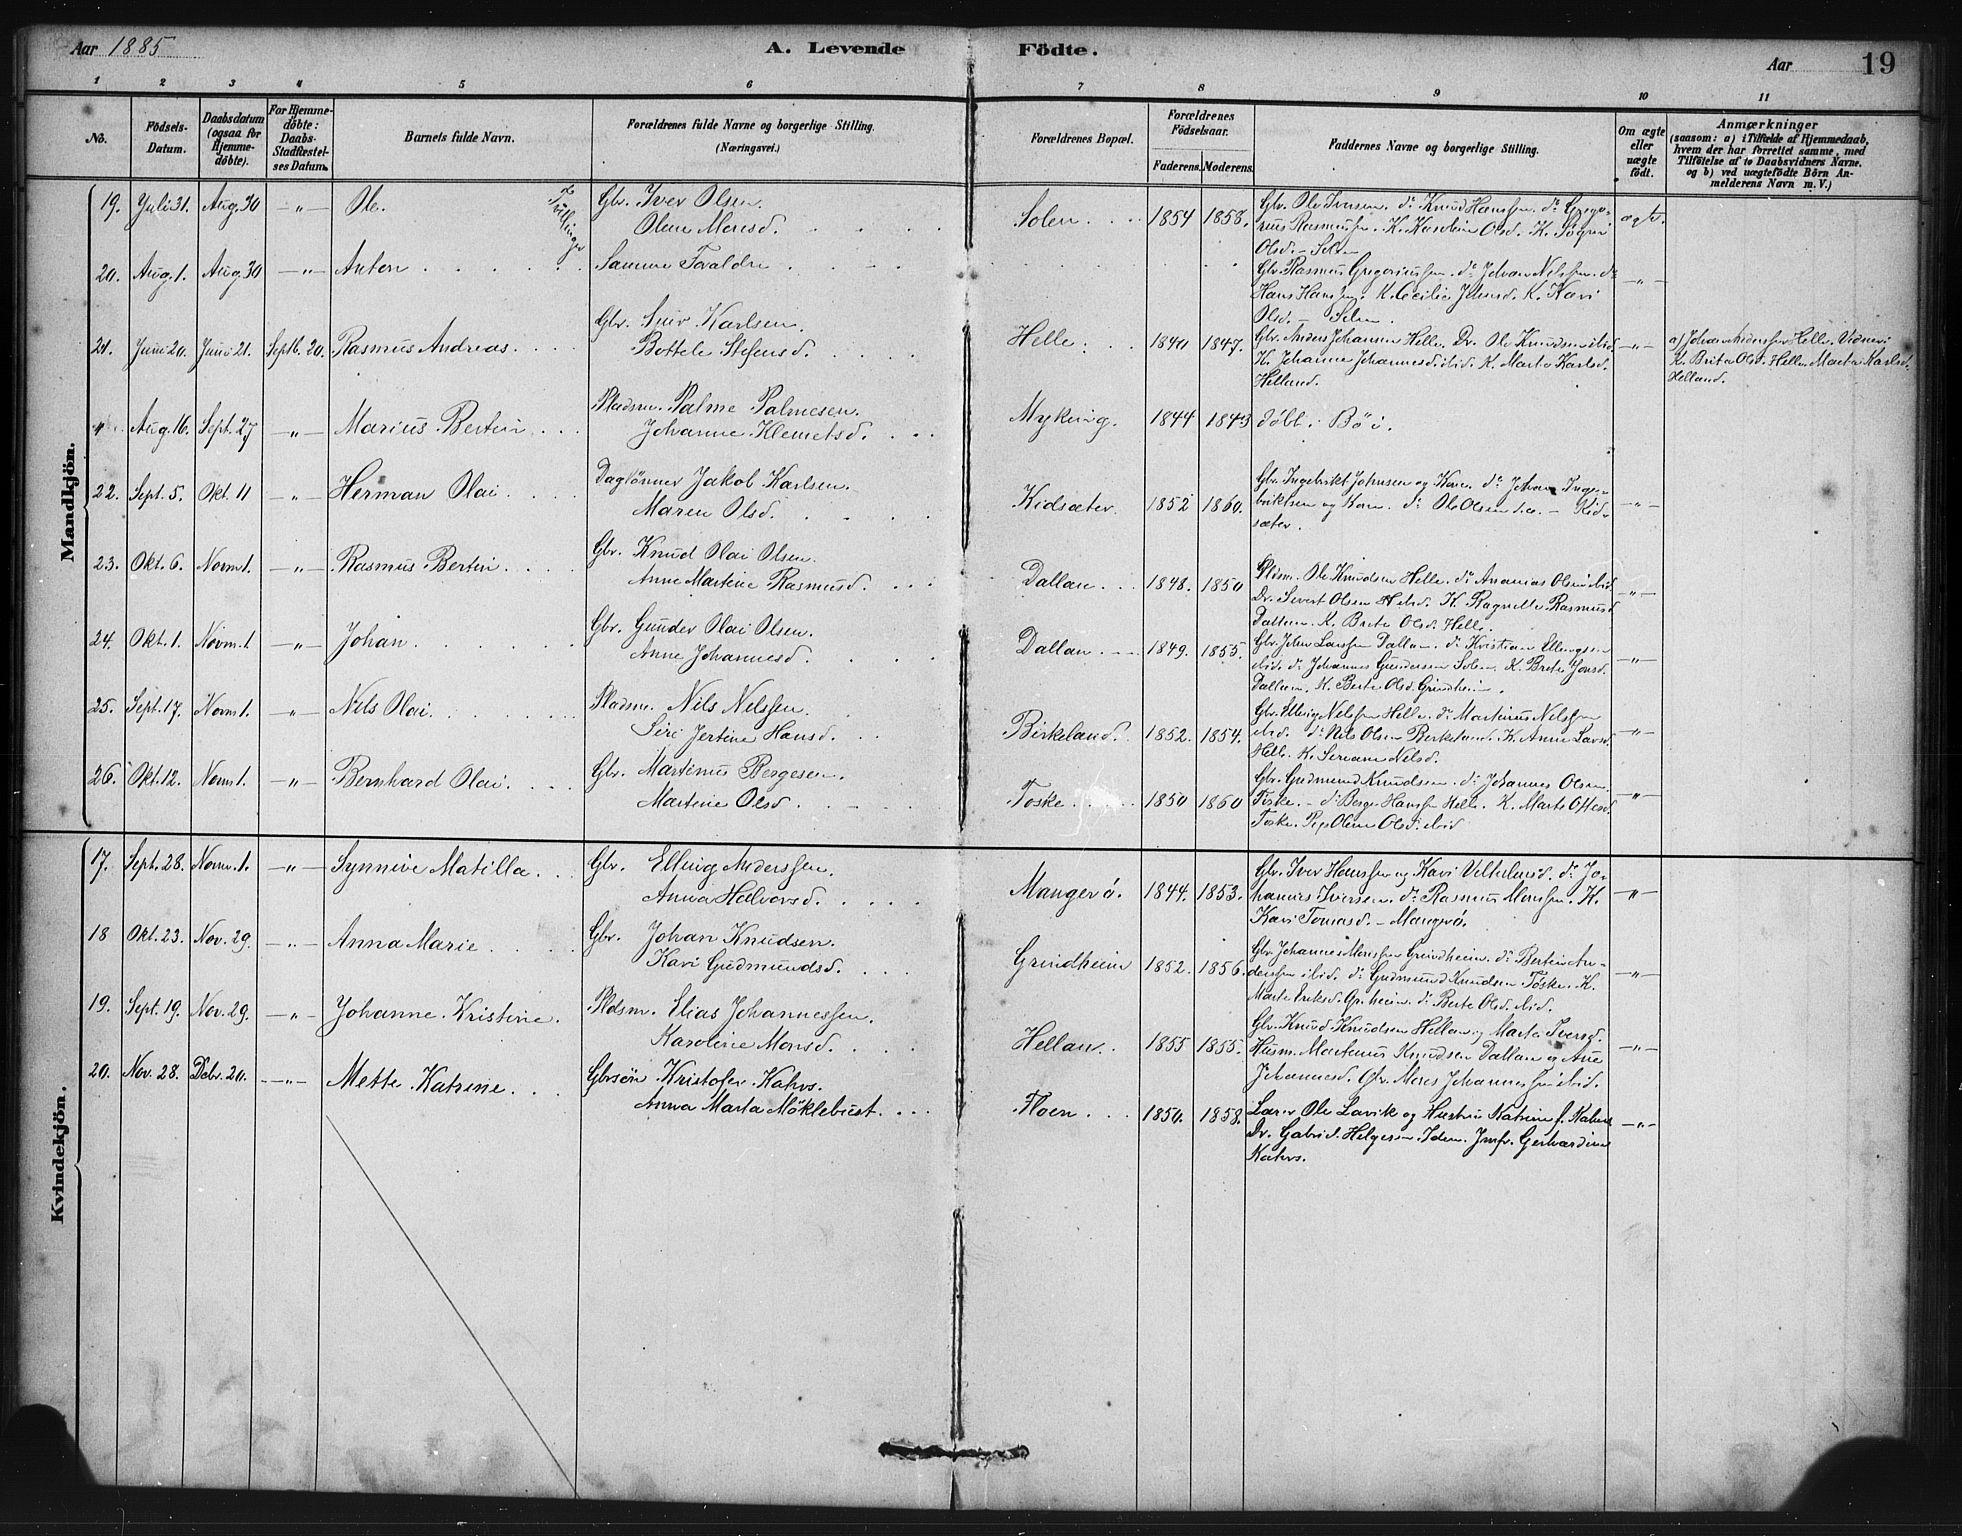 Aar 1885 A. Levende Födte. Aar 19
1 2 3 4 5 6 7 8 9 10 11
No. Födsels-Datum. Daabsdatum (ogsaa for Hjemme-döbte). For Hjemme-döbte: Daabs-Stadfæstel-ses Datum. Barnets fulde Navn. Forældrenes fulde Navne og borgerlige Stilling. (Næringsvei.) Forældrenes Bopæl. Forældrenes Födselsaar. Faderens. Moderens. Faddernes Navne og borgerlige Stilling. Om ægte eller uægte födt. Anmærkninger
(saasom: a) i Tilfælde af Hjemmedaab,
hvem der har forrettet samme, med
Tilföielse af to Daabsvidners Navne,
og b) ved uægtefödte Börn An-
melderens Navn m.V.)
Mandkjön.
19. Juli 31. Aug. 30 -"- Ole. Tvillinger Gbr. Iver Olsen.
Oline Monsd. Solen 1854 1858. Gbr. Ole Iversen. do Knud Hanssen. do Grego-
rius Rasmussen. K. Karoline Olsd. K. Sögni
Olsd. - Solen ægte.
20. Aug. 1. Aug. 30 -"- Anton Samme Forældre Gbr. Rasmus Gregoriussen. do Johan Nilssen. do
Hans Hanssen. K. Cecilie Johnsd. K. Kari
Olsd. - Solen. -"-
21. Juni 20. Juni 21. Septb. 20. Rasmus Andreas. Gbr. Siur Karlsen.
Bottele Stefensd. Helle. 1840 1847. Gbr. Anders Johannsen Helle. Dr. Ole Knudsen ibid.
K. Johanne Johannesd. ibid. K. Marta Karlsd.
Helland. -"- a) Johan Anderssen Helle. Vidner:
K. Brita Olsd. Helle. Marta Karlsd.
Helland.
Aug. 16. Sept. 27 -"- Marius Bertin Pladsm. Palme Palmesen.
Johanne Klemetsd. Myking. 1844 1843 döbt i Bö i.
22. Sept. 5. Okt. 11 -"- Herman Olai Daglönner Jakob Karlsen.
Maren Olsd. Kidsæter 1852 1860. Gbr. Ingebrikt Johnsen og Kone. do Johan Inge-
briktsen og Kone. do Ole Olsen - Kid-
sæter. -"-
23. Okt. 6. Novm 1. -"- Rasmus Bertin Gbr. Knud Olai Olsen.
Anne Martine Rasmusd. Dallan 1848. 1850 Pldsm. Ole Knudsen Helle. do Ananias Olsen ibid.
Dr. Sivert Olsen K. Ragnilla Rasmusd.
Dallan. K. Brita Olsd. Helle. -"-
24. Okt. 1. Novm. 1 -"- Johan Gbr. Gunder Olai Olsen.
Anne Johannesd. Dallan 1849. 1855. Gbr. John Larssen Dallan. do Kristian Ellingsen
ibid. do Johannes Gundersen Solen. K. Brita Jonsd.
Dallan. K. Berta Olsd. Grindheim. -"-
25. Sept. 17. Novm 1. -"- Nils Olai Pladsm. Nils Nilssen.
Siri Jertine Hansd. Birkeland. 1852. 1854. Gbr. Elling Nilssen Helle. do Martinus Nilssen
ibid. do Nils Olsen Birkeland. K. Anne Larsd.
Helle. K. Seriane Nilsd. -"-
26. Okt. 12. Novm 1. -"- Bernhard Olai Gbr. Martinus Bergesen.
Martine Olsd. Töske 1850 1860 Gbr. Gudmund Knudsen. do Johannes Olsen
Töske. - do Berge Hanssen Helle. K. Marta Offesd.
Töske. Pige Oline Olsd. ibid -"-
Kvindekjön.
17. Sept. 28. Novm. 1. -"- Synnive Matilla Gbr. Elling Anderssen.
Anna Halvorsd. Mangerö. 1844. 1853. Gbr. Iver Hanssen og Kari Vilhelmsd. do Jo-
hannes Iversen. do Rasmus Monssen. K.
Kari Tomasd. - Mangerö. -"-
18 Okt. 23. Nov. 29. -"- Anna Marie Gbr. Johan Knudsen.
Kari Gudmundsd. Grindheim 1852. 1856. Gbr. Johannes Monssen Grindheim. do Bertin An-
derssen ibid. do Gudmund Knudsen Töske. K.
Marta Eriksd. Gr.heim. do Berte Olsd. ibid. -"-
19. Sept. 19. Nov. 29. -"- Johanne Kristine. Pldsm. Elias Johannessen.
Karoline Monsd. Hellan 1855 1855. Gbr. Knud Knudsen Hellan og Marta Iversd.
Husm. Martinus Knudsen Dallan og Ane
Johannesd. Gbr. Mons Johannessen ibid. -"-
20. Nov. 28. Debr. 20. -"- Mette Katrine Gbrsön Kristofer Kahrs.
Anna Marta Möklebust. Floen 1850. 1858. Lærer Ole Lavik og Hustru Katrine f. Kahrs
Dr. Gabriel Helgesen. Idem. Jmfr. Gerhardine
Kahrs. -"-